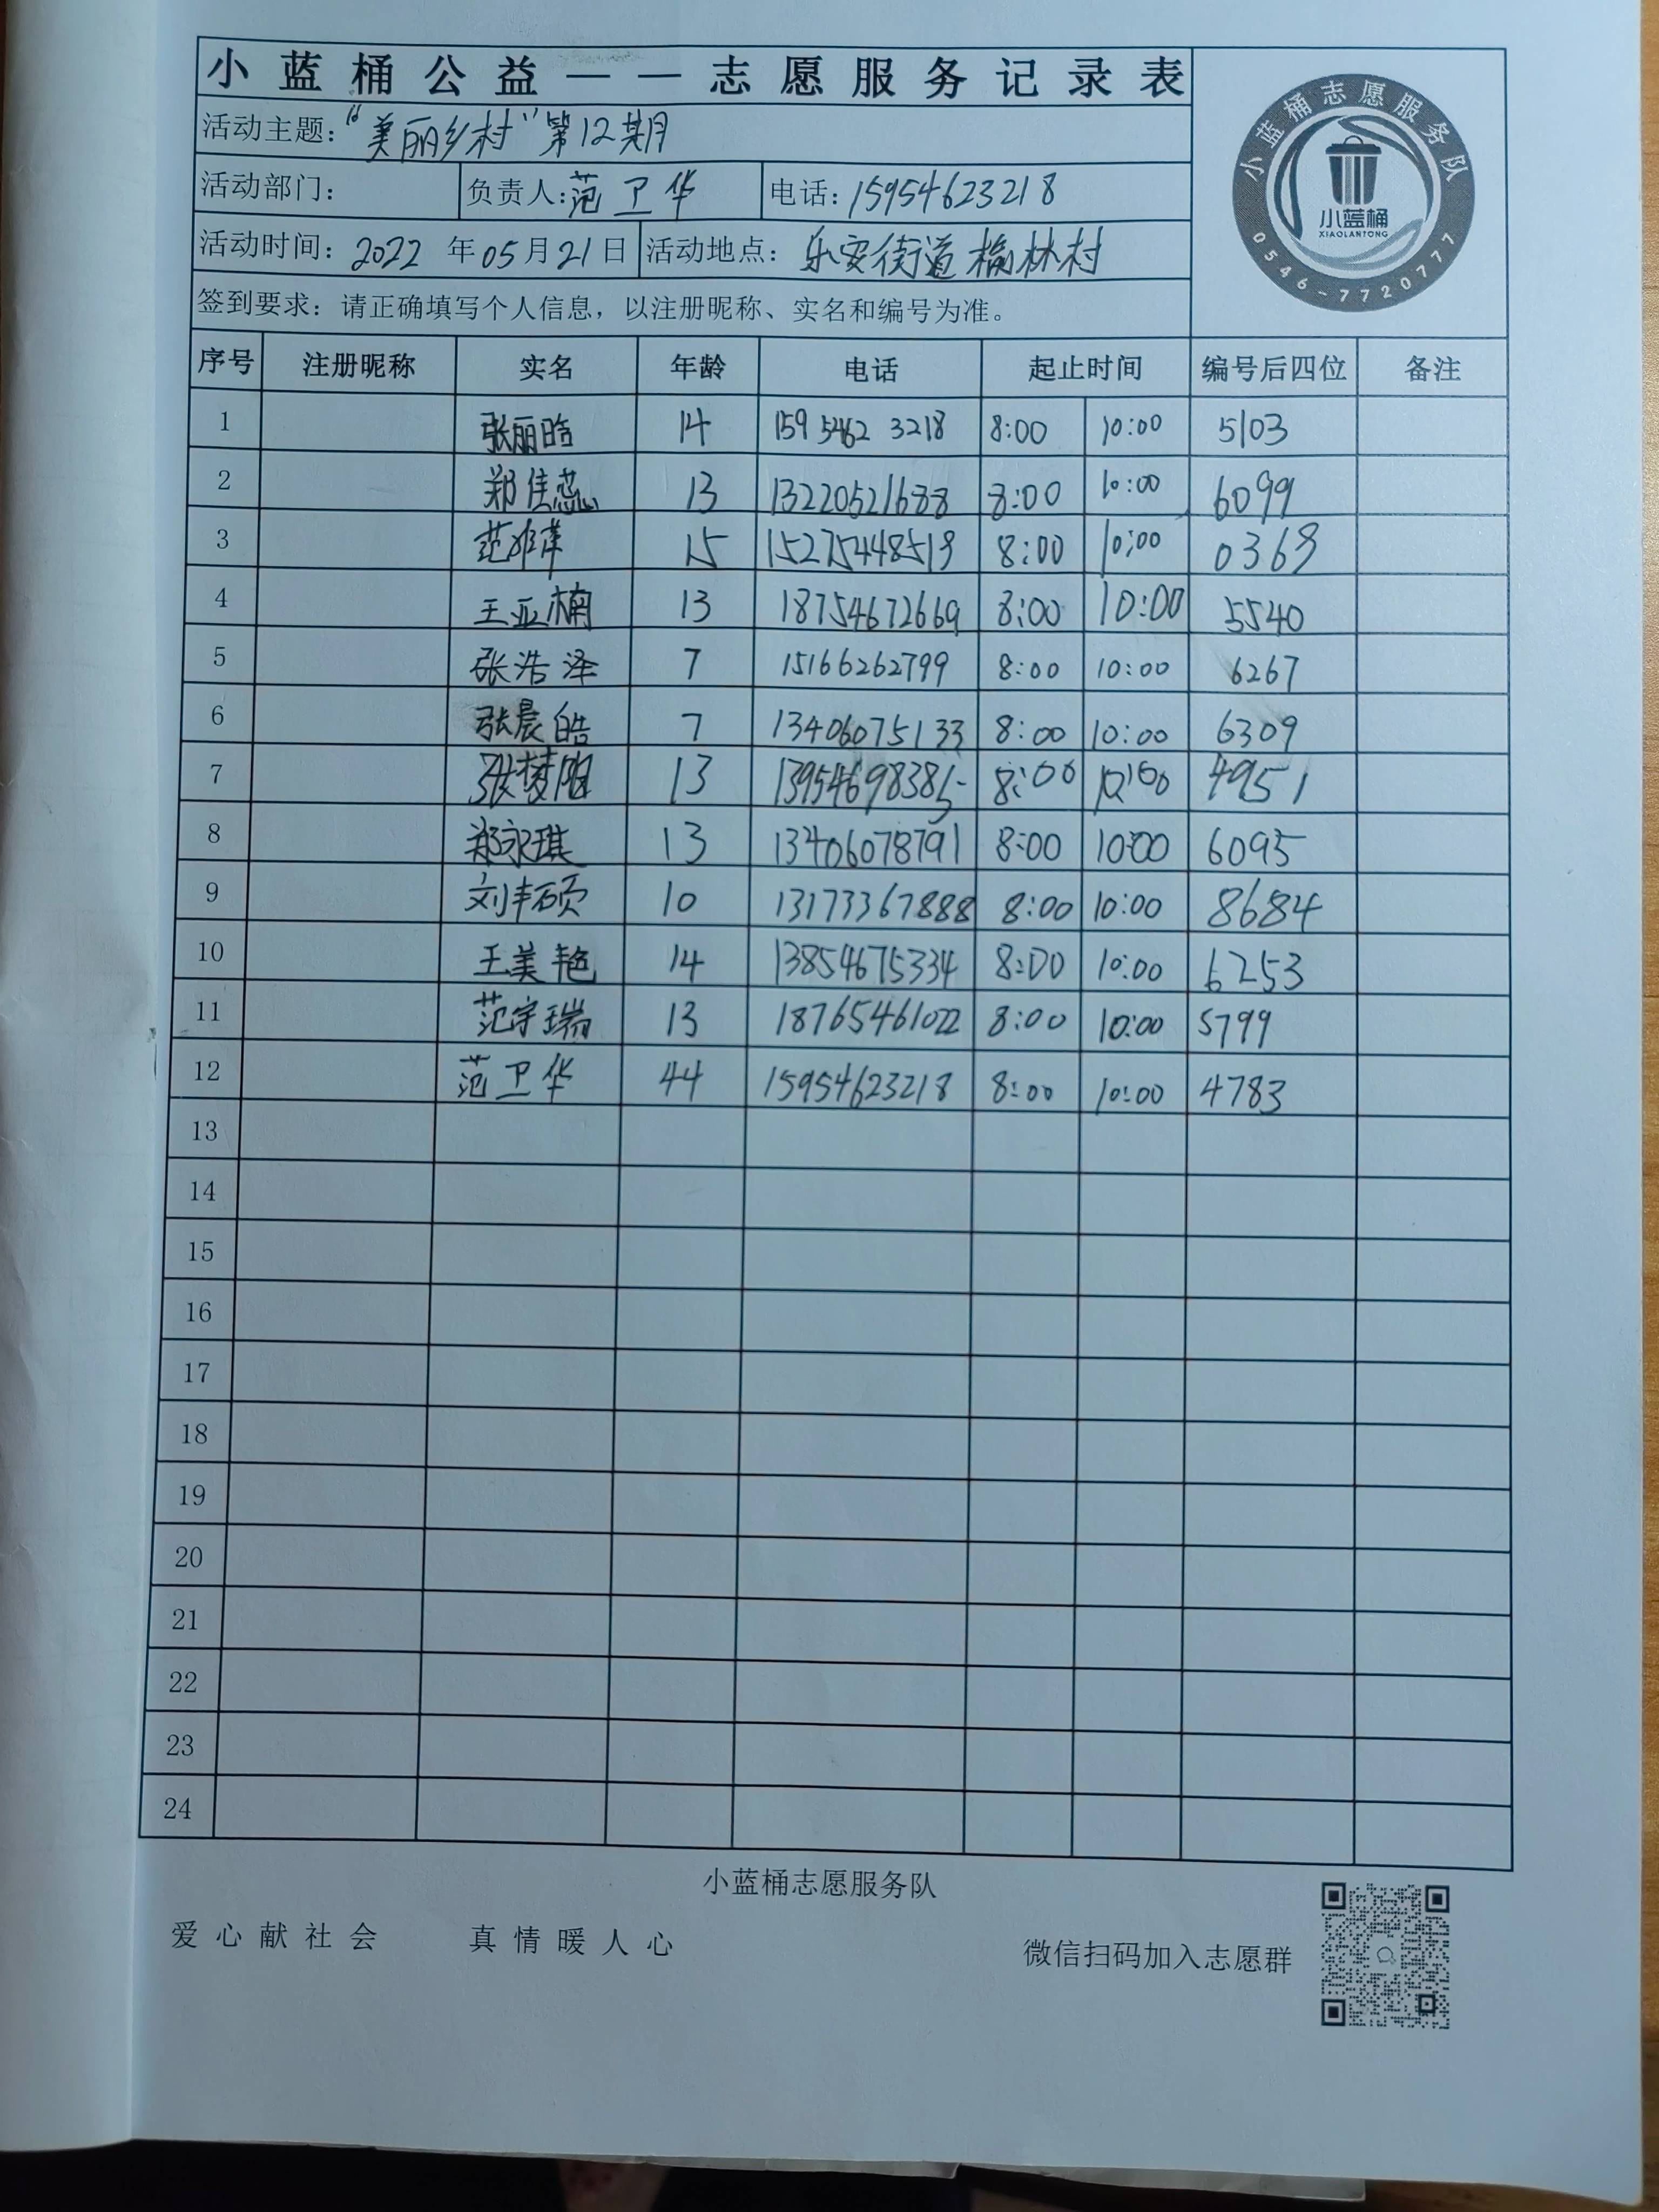 小蓝桶公益——志愿服务记录表
活动主题：“美丽乡村”第12期
活动部门： 负责人：范卫华 电话：15954623218
活动时间：2022年05月21日 活动地点：乐安街道榆林村
签到要求：请正确填写个人信息，以注册昵称、实名和编号为准。
小蓝桶志愿服务队
小蓝桶
XIAOLANTONG
0546-7720777
序号 注册昵称 实名 年龄 电话 起止时间 编号后四位 备注
1 张丽晗 14 159 5462 3218 8:00 10:00 5103
2 郑佳蕊 13 13220521688 8:00 10:00 6099
3 范雅萍 15 15275448519 8:00 10:00 0369
4 王亚楠 13 18754672669 8:00 10:00 5540
5 张浩泽 7 15166262799 8:00 10:00 6267
6 张晨皓 7 13406075133 8:00 10:00 6309
7 张梦 13 13954698385 8:00 10:00 4951
8 郑永琪 13 13406078791 8:00 10:00 6095
9 刘丰硕 10 13173367888 8:00 10:00 8684
10 王美艳 14 13854675334 8:00 10:00 6253
11 范宇瑞 13 18765461022 8:00 10:00 5799
12 范卫华 44 15954623218 8:00 10:00 4783
13
14
15
16
17
18
19
20
21
22
23
24
小蓝桶志愿服务队
爱心献社会 真情暖人心
微信扫码加入志愿群